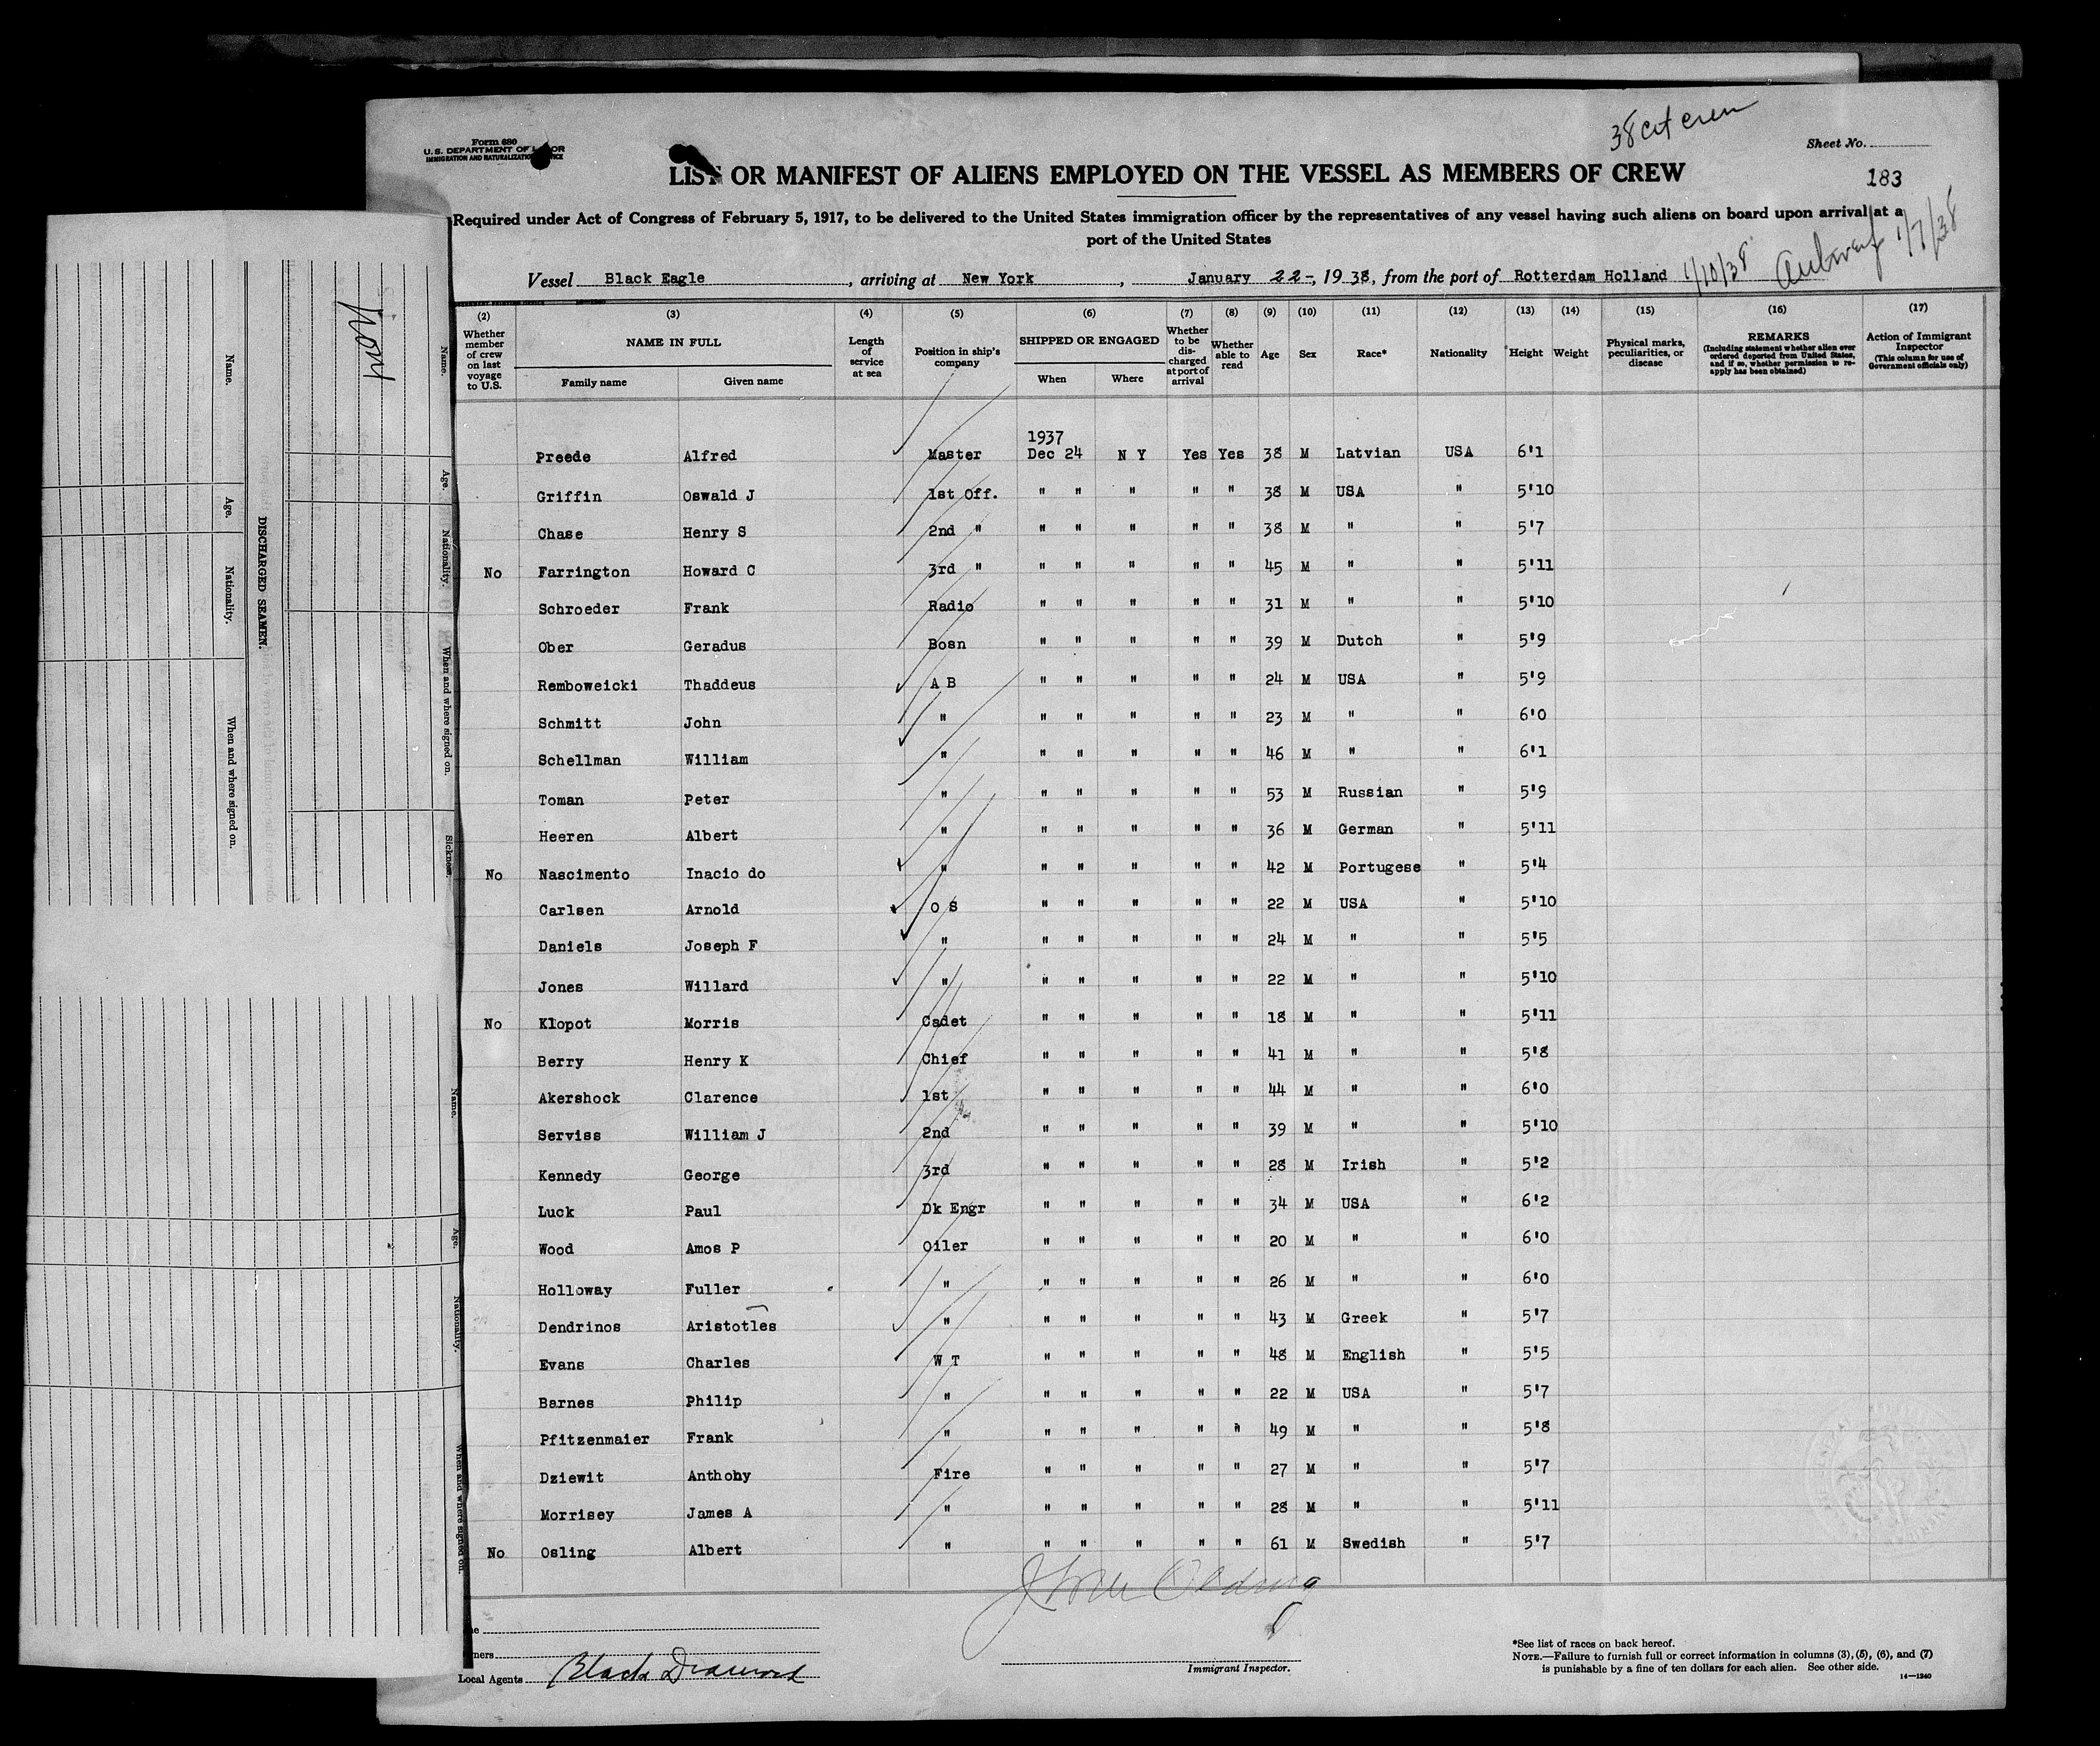 38 cit crew
Form 680
U.S. DEPARTMENT OF LABOR
IMMIGRATION AND NATURALIZATION SERVICE
Sheet No.
LIST OR MANIFEST OF ALIENS EMPLOYED ON THE VESSEL AS MEMBERS OF CREW
183
Required under Act of Congress of February 5, 1917, to be delivered to the United States immigration officer by the representatives of any vessel having such aliens on board upon arrival at a
port of the United States
Vessel Black Eagle, arriving at New York, January 22-, 1938, from the port of Rotterdam Holland 1/10/38 Antwerp 1/7/38
(2) (3) (4) (5) (6) (7) (8) (9) (10) (11) (12) (13) (14) (15) (16) (17)
Whether member of crew on last voyage to U.S. NAME IN FULL Length of service at sea Position in ship's company SHIPPED OR ENGAGED Whether to be discharged at port of arrival Whether able to read Age Sex Race* Nationality Height Weight Physical marks, peculiarities, or disease REMARKS (Including statement whether alien ever ordered deported from United States, and if so, whether permission to reapply has been obtained) Action of Immigrant Inspector (This column for use of Government officials only)
Family name Given name When Where
1937
Preede Alfred Master Dec 24 N Y Yes Yes 38 M Latvian USA 6'1
Griffin Oswald J 1st Off. " " " " " 38 M USA " 5'10
Chase Henry S 2nd " " " " " " 38 M " " 5'7
No Farrington Howard C 3rd " " " " " " 45 M " " 5'11
Schroeder Frank Radio " " " " " 31 M " " 5'10
Ober Geradus Bosn " " " " " 39 M Dutch " 5'9
Remboweicki Thaddeus A B " " " " " 24 M USA " 5'9
Schmitt John " " " " " " 23 M " " 6'0
Schellman William " " " " " " 46 M " " 6'1
Toman Peter " " " " " " 53 M Russian " 5'9
Heeren Albert " " " " " " 36 M German " 5'11
No Nascimento Inacio do " " " " " " 42 M Portugese " 5'4
Carlsen Arnold O S " " " " " 22 M USA " 5'10
Daniels Joseph F " " " " " " 24 M " " 5'5
Jones Willard " " " " " " 22 M " " 5'10
No Klopot Morris Cadet " " " " " 18 M " " 5'11
Berry Henry K Chief " " " " " 41 M " " 5'8
Akershock Clarence 1st " " " " " 44 M " " 6'0
Serviss William J 2nd " " " " " 39 M " " 5'10
Kennedy George 3rd " " " " " 28 M Irish " 5'2
Luck Paul Dk Engr " " " " " 34 M USA " 6'2
Wood Amos P Oiler " " " " " 20 M " " 6'0
Holloway Fuller " " " " " " 26 M " " 6'0
Dendrinos Aristotles " " " " " " 43 M Greek " 5'7
Evans Charles W T " " " " " 48 M English " 5'5
Barnes Philip " " " " " " 22 M USA " 5'7
Pfitzenmaier Frank " " " " " " 49 M " " 5'8
Dziewit Anthony Fire " " " " " 27 M " " 5'7
Morrisey James A " " " " " " 28 M " " 5'11
No Osling Albert " " " " " " 61 M Swedish " 5'7
Local Agents Black Diamond
Immigrant Inspector.
*See list of races on back hereof.
NOTE.—Failure to furnish full or correct information in columns (3), (5), (6), and (7)
is punishable by a fine of ten dollars for each alien. See other side.
14—1240
Name. Age. Nationality. When and where signed on.
DISCHARGED SEAMEN.
Name. Age. Nationality. When and where signed on. Sickness.
Name. Age. Nationality. When and where signed on.